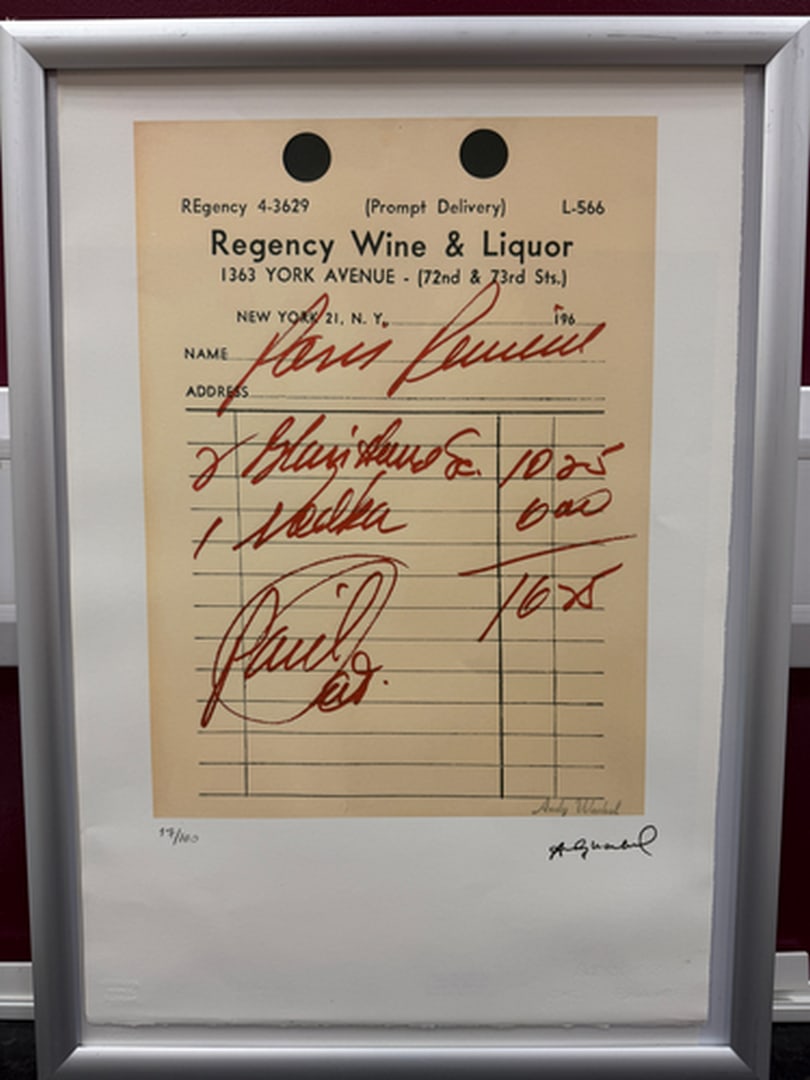 REgency 4-3629 (Prompt Delivery) L-566
Regency Wine & Liquor
1363 YORK AVENUE - (72nd & 73rd Sts.)
NEW YORK 21, N. Y. 196
NAME
ADDRESS
2 10 25
1 Vodka 6 00
16 25
Paid
Andy Warhol
17/100
Andy Warhol